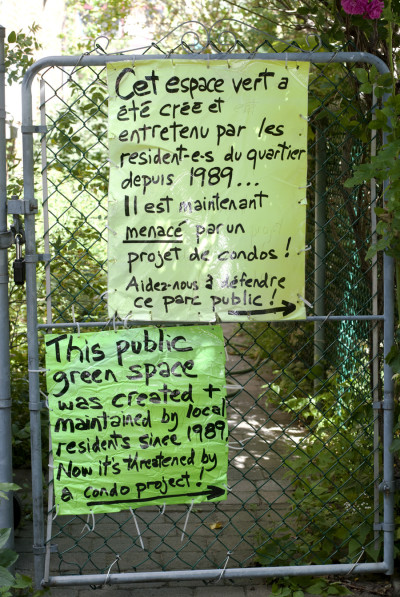 Cet espace vert a
été créé et
entretenu par les
resident-e-s du quartier
depuis 1989...
Il est maintenant
menacé par un
projet de condos !
Aidez-nous à défendre
ce parc public !
This public
green space
was created +
maintained by local
residents since 1989.
Now it's threatened by
a condo project !